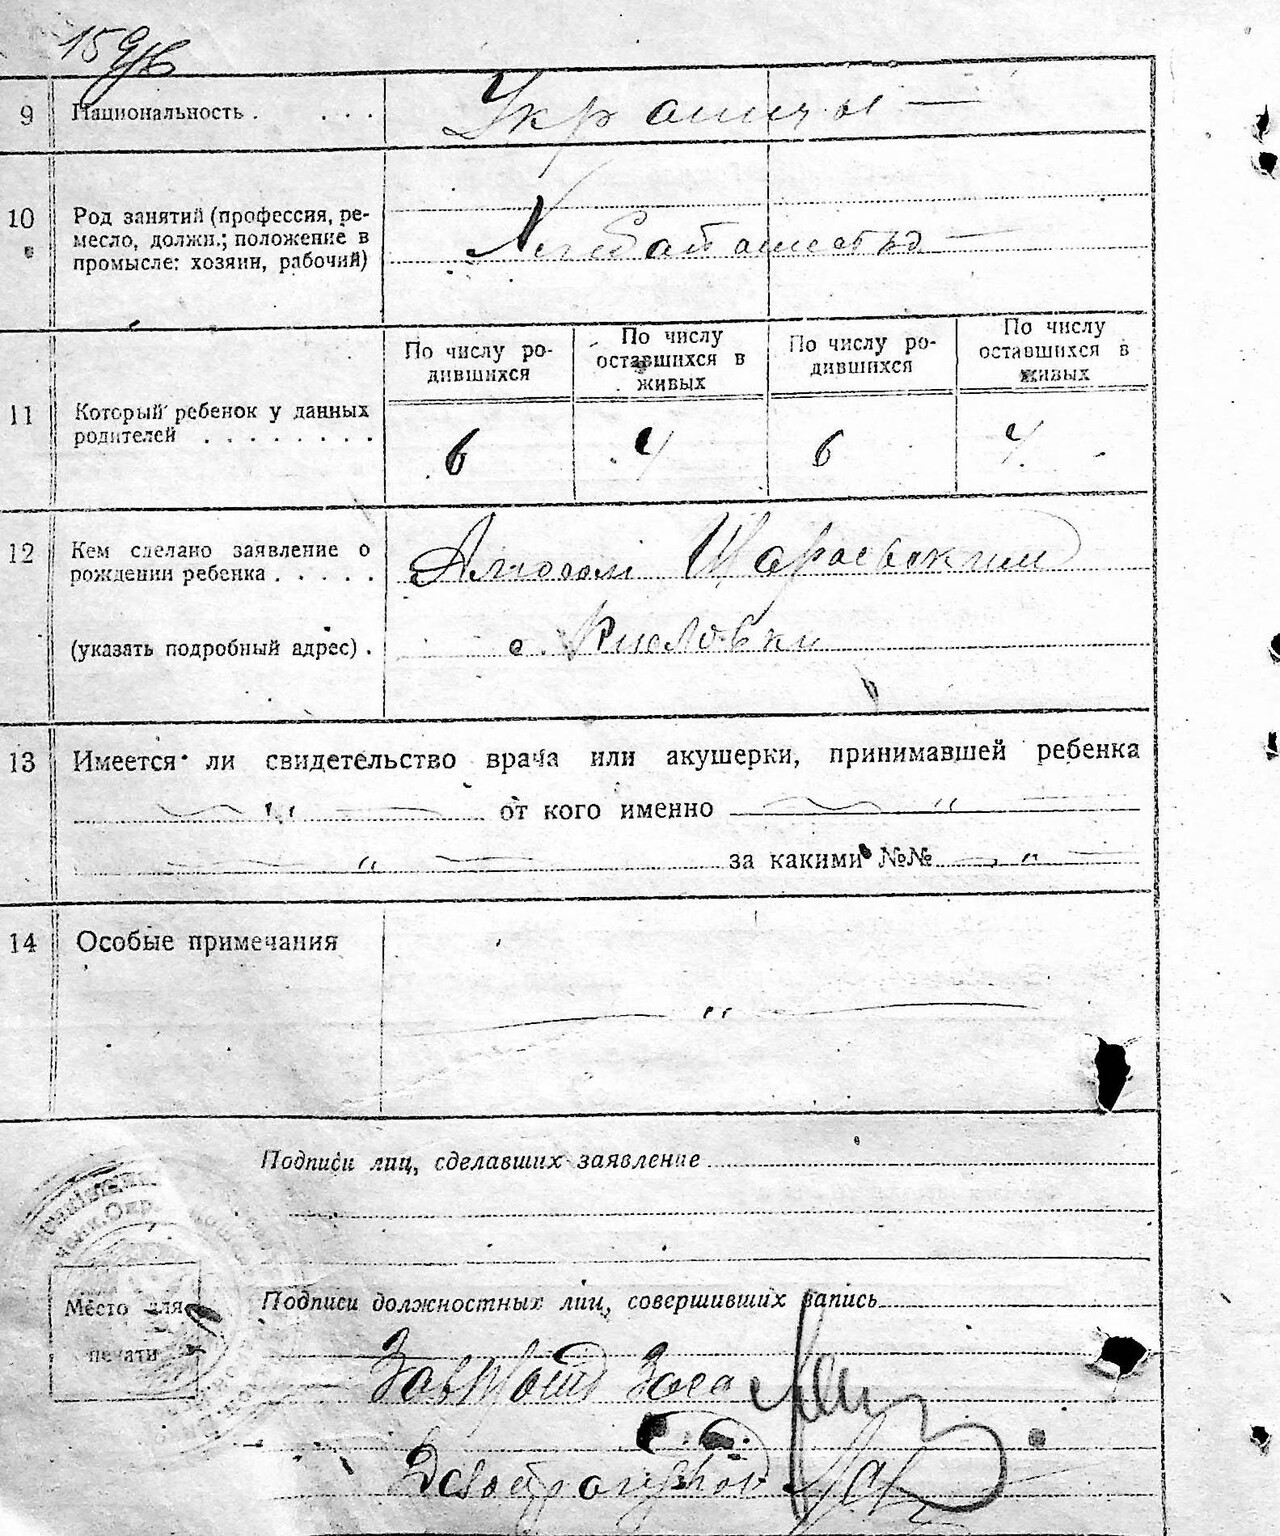 9 Национальность . . . . Украинцы —
10 Род занятий (профессия, ре-
месло, должн.; положение в
промысле: хозяин, рабочий)
Хлебопашество —
По числу ро-
дившихся
По числу
оставшихся в
живых
По числу ро-
дившихся
По числу
оставшихся в
живых
11 Который ребенок у данных
родителей . . . . . . . .
6 4 6 4
12 Кем сделано заявление о
рождении ребенка . . . . .
(указать подробный адрес) .
с. Кисловки
13 Имеется ли свидетельство врача или акушерки, принимавшей ребенка
— " — от кого именно — " —
— " — за какими №№ — " —
14 Особые примечания
— " —
Подписи лиц, сделавших заявление
Место для
печати
Подписи должностных лиц, совершивших запись